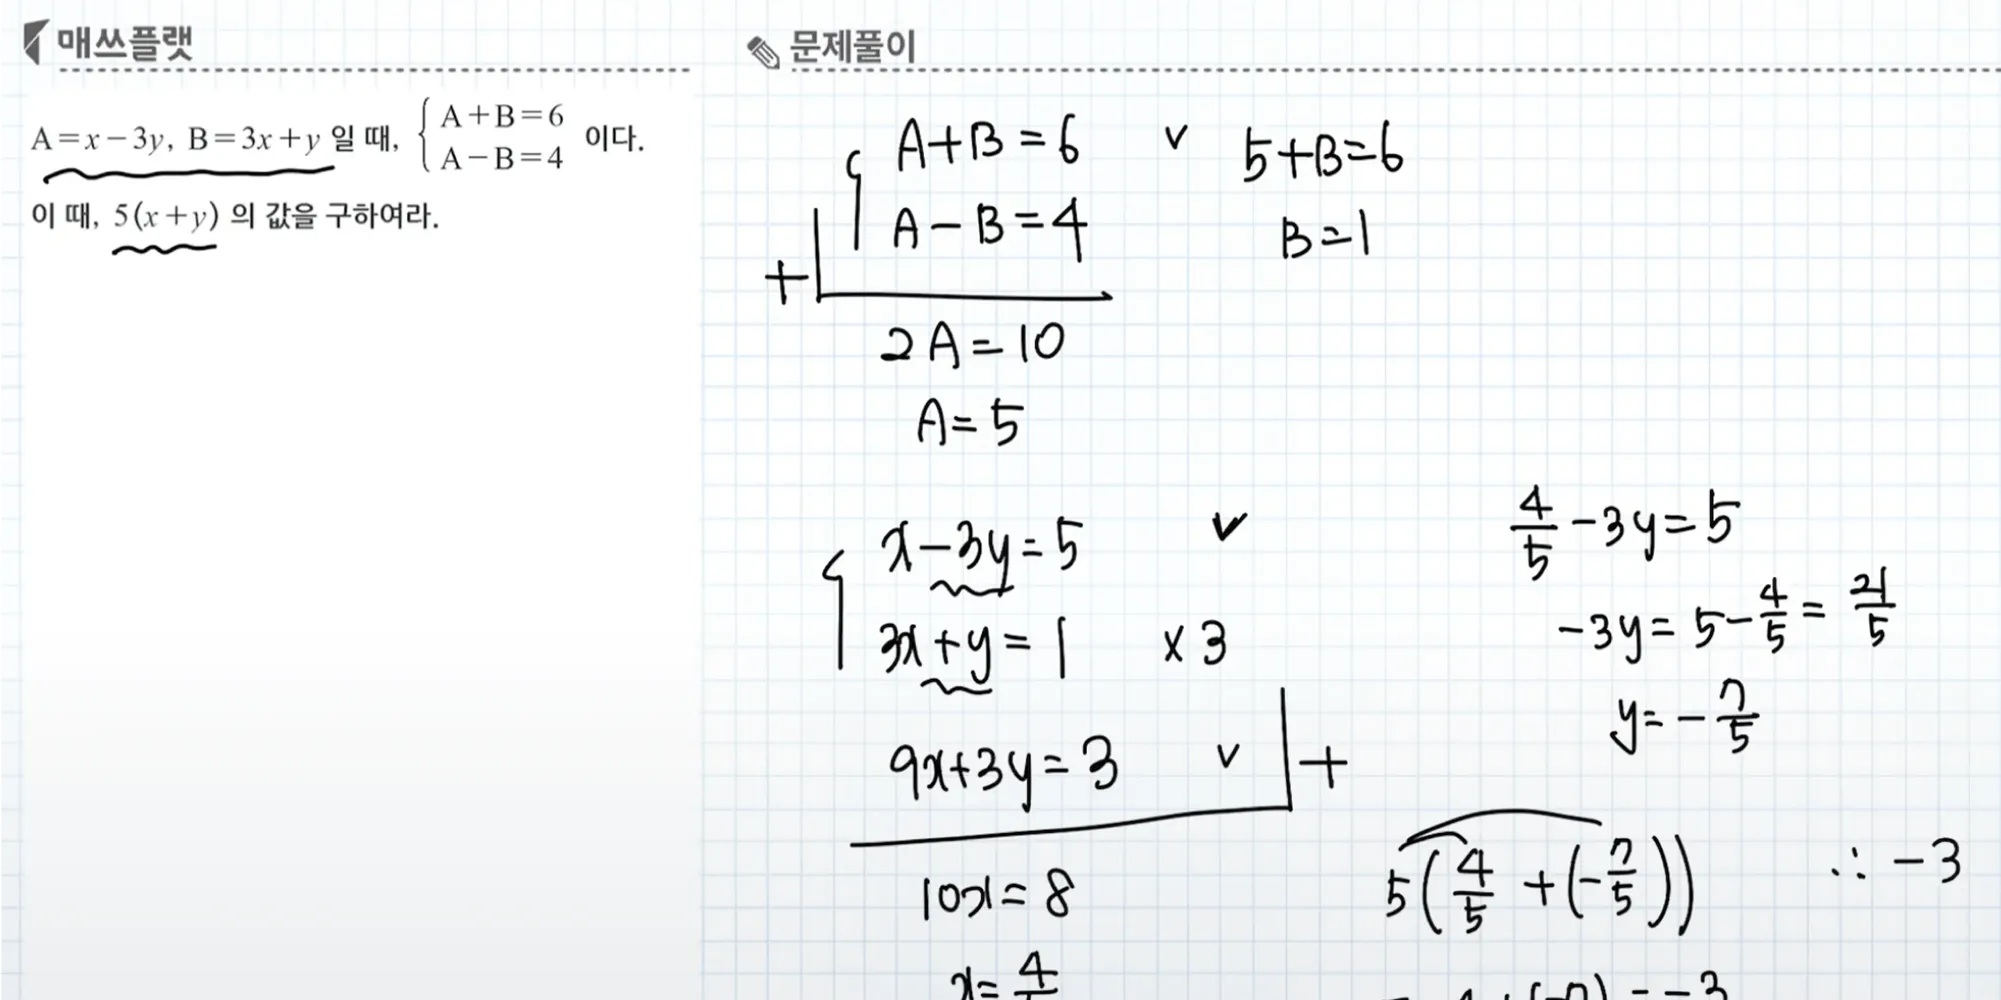 매쓰플랫
A=x-3y, B=3x+y 일 때, { A+B=6 이다.
A-B=4
이 때, 5(x+y) 의 값을 구하여라.
문제풀이
A+B=6 ∨
A-B=4
+
2A=10
A=5
5+B=6
B=1
x-3y=5 ∨
3x+y=1 ×3
9x+3y=3 ∨ +
10x=8
x=4
4/5-3y=5
-3y=5-4/5=21/5
y=-7/5
5(4/5+(-7/5)) ∴ -3